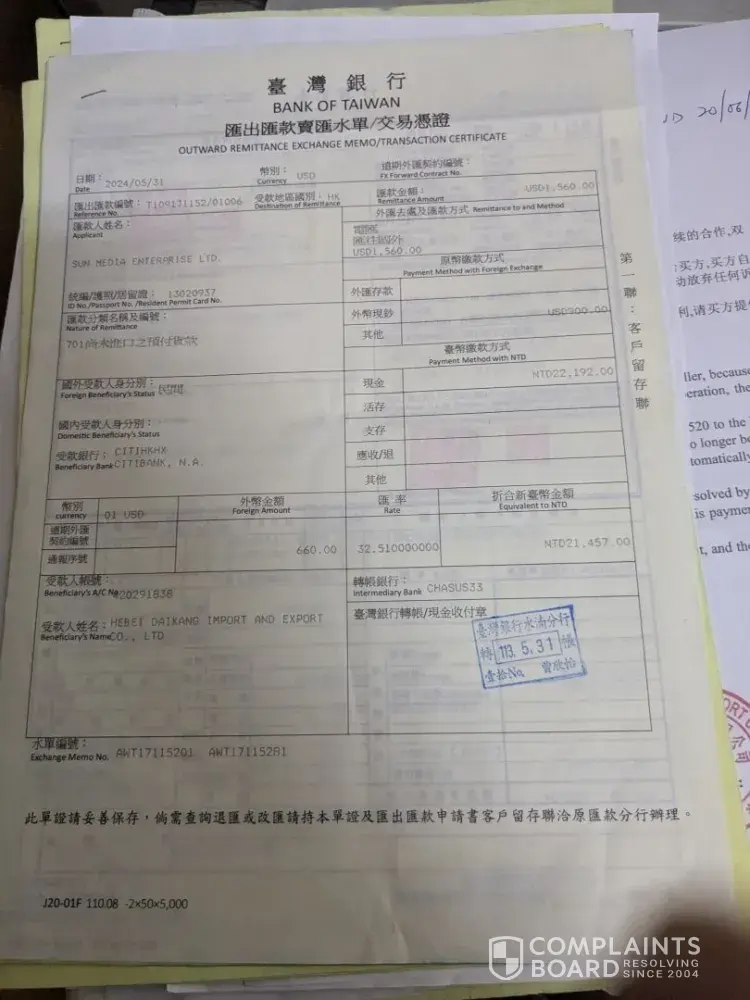 臺灣銀行
BANK OF TAIWAN
匯出匯款賣匯水單/交易憑證
OUTWARD REMITTANCE EXCHANGE MEMO/TRANSACTION CERTIFICATE
日期： 2024/05/31 幣別： USD 遠期外匯契約編號：
Date Currency FX Forward Contract No.
匯出匯款編號： T109171152/01006 受款地區國別： HK 匯款金額： USD1,560.00
Reference No. Destination of Remittance Remittance Amount
匯款人姓名： 外匯去處及匯款方式 Remittance to and Method
Applicant
電匯
匯往國外
SUN MEDIA ENTERPRISE LTD. USD1,560.00
原幣繳款方式
Payment Method with Foreign Exchange
統編/護照/居留證： 13020937 外匯存款
ID No./Passport No. /Resident Permit Card No.
匯款分類名稱及編號： 外幣現鈔 USD900.00
Nature of Remittance
701尚未進口之預付貨款 其他
臺幣繳款方式
Payment Method with NTD
國外受款人身分別： 民間 現金 NTD22,192.00
Foreign Beneficiary's Status
活存
國內受款人身分別： 支存
Domestic Beneficiary's Status
受款銀行： CITIHKHX 應收/退
Beneficiary Bank CITIBANK, N.A.
其他
幣別 01 USD 外幣金額 匯率 折合新臺幣金額
currency Foreign Amount Rate Equivalent to NTD
遠期外匯
契約編號
通報序號 660.00 32.510000000 NTD21,457.00
受款人帳號： 轉帳銀行： CHASUS33
Beneficiary's A/C No 20291838 Intermediary Bank
臺灣銀行轉帳/現金收付章
受款人姓名： HEBEI DAIKANG IMPORT AND EXPORT
Beneficiary's Name CO., LTD
臺灣銀行水湳分行
轉 113. 5. 31 帳
壹拾No.
水單編號：
Exchange Memo No. AWT171152Q1 AWT171152R1
此單證請妥善保存，倘需查詢退匯或改匯請持本單證及匯出匯款申請書客戶留存聯洽原匯款分行辦理。
J20-01F 110.08 -2×50×5,000
第一聯：客戶留存聯
20/06/
续的合作,双
买方,买方自
动放弃任何诉
利,请买方提
ller, because
eration, the
520 to the
o longer be
tomatically
solved by
is paymen
t, and the
PORT
COMPLAINTS
BOARD RESOLVING
SINCE 2004